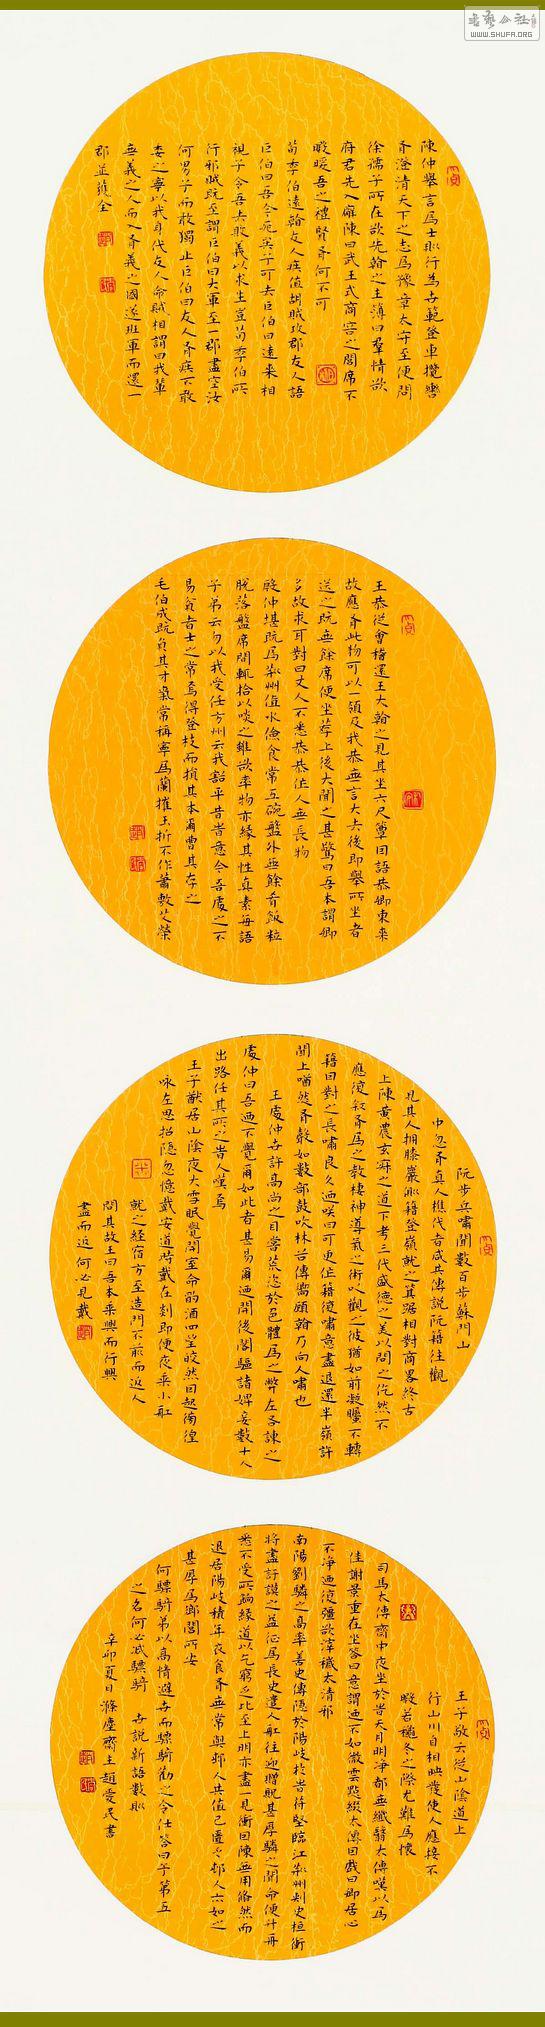 書藝公社
WWW.SHUFA.ORG
陳仲舉言為士則行為世範登車攬轡
有澄清天下之志為豫章太守至便問
徐孺子所在欲先看之主薄曰羣情欲
府君先入廨陳曰武王式商容之閭席不
暇暖吾之禮賢有何不可
荀巨伯遠看友人疾值胡賊攻郡友人語
巨伯曰吾今死矣子可去巨伯曰遠來相
視子令吾去敗義以求生豈荀巨伯所
行邪賊既至謂巨伯曰大軍至一郡盡空汝
何男子而敢獨止巨伯曰友人有疾不敢
委之寧以我身代友人命賊相謂曰我輩
無義之人而入有義之國遂班軍而還一
郡並獲全
王恭從會稽還王大看之見其坐六尺簟因語恭卿東來
故應有此物可以一領及我恭無言大去後即舉所坐者
送之既無餘席便坐薦上後大聞之甚驚曰吾本謂卿
多故求耳對曰丈人不悉恭恭作人無長物
殷仲堪既為荊州值水儉食常五碗盤外無餘肴飯粒
脫落盤席間輒拾以啖之雖欲率物亦緣其性真素每語
子弟云勿以我受任方州云我豁平昔時意今吾處之不
易貧者士之常焉得登枝而捐其本爾曹其存之
毛伯成既負其才氣常稱寧為蘭摧玉折不作蕭敷艾榮
阮步兵嘯聞數百步蘇門山
中忽有真人樵伐者咸共傳說阮籍往觀
見其人擁膝巖側籍登嶺就之箕踞相對商略終古
上陳黃農玄寂之道下考三代盛德之美以問之仡然不
應復敘有為之教棲神導氣之術以觀之彼猶如前凝矚不轉
籍因對之長嘯良久迺咲曰可更作籍復嘯意盡退還半嶺許
聞上㗀然有聲如數部鼓吹林谷傳響顧看乃向人嘯也
王處仲世許高尚之目嘗荒恣於色體為之弊左右諫之
處仲曰吾迺不覺爾如此者甚易爾迺開後閣驅諸婢妾數十人
出路任其所之時人嘆焉
王子猷居山陰夜大雪眠覺開室命酌酒四望皎然因起徬徨
咏左思招隱忽憶戴安道時戴在剡即便夜乘小船
就之經宿方至造門不前而返人
問其故王曰吾本乘興而行興
盡而返何必見戴
王子敬云從山陰道上
行山川自相映發使人應接不
暇若秋冬之際尤難為懷
司馬太傅齋中夜坐於時天月明淨都無纖翳太傅嘆以為
佳謝景重在坐答曰意謂迺不如微雲點綴太傅因戲曰卿居心
不淨迺復彊欲滓穢太清邪
南陽劉驎之高率善史傳隱於陽岐於時苻堅臨江荊州刺史桓衝
將盡訏謨之益征為長史遣人船往迎贈貺甚厚驎之聞命便升舟
悉不受所餉緣道以乞窮乏比至上明亦盡一見衝因陳無用翛然而
退居陽岐積年衣食有無常與邨人共值己匱乏邨人亦如之
甚厚為鄉閭所安
何驃騎弟以高情避世而驃騎勸之令仕答曰予第五
之名何必減驃騎　世說新語數則
辛卯夏日滌塵齋主趙愛民書